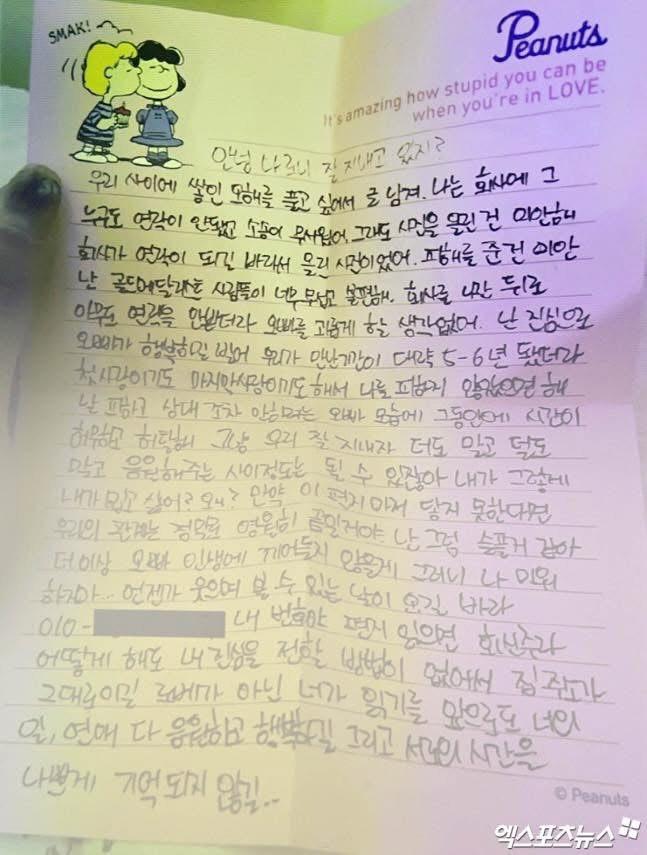 SMAK!
Peanuts
It's amazing how stupid you can be
when you're in LOVE.
안녕 나 잘 지내고 있지?
우리 사이에 쌓인 오해를 풀고 싶어서 글 남겨. 나는 회사에 그
누구도 연락이 안됐고 소송이 무서웠어. 그래도 사진을 올린 건 미안해
회사가 연락이 되길 바라서 올린 사진이었어. 피해를 준건 미안
난 골드메달리스트 사람들이 너무 무섭고 불편해. 회사를 나간 뒤로
아무도 연락을 안받더라 오빠를 괴롭게 할 생각없어. 난 진심으로
오빠가 행복하길 빌어 우리가 만난기간이 대략 5-6년 됐더라
첫사랑이기도 마지막사랑이기도해서 나를 피하지 않았으면 해
날 피하고 상대 조차 안하려는 오빠 모습에 그동안에 시간이
허무하고 허탈해 그냥 우리 잘 지내자 더도 말고 덜도
말고 응원해주는 사이정도는 될 수 있잖아 내가 그렇게
내가 밉고 싫어? 왜? 만약 이 편지마저 닿지 못한다면
우리의 관계는 정말로 영원히 끝일거야 난 그럼 슬플거 같아
더이상 오빠 인생에 끼어들지 않을게 그러니 나 미워
하지마.. 언젠가 웃으며 볼 수 있는 날이 오길 바라
010- 내 번호야 편지 읽으면 회신주라
어떻게 해도 내 진심을 전할 방법이 없어서 집 주소가
그대로이길 로베가 아닌 너가 읽기를 앞으로도 너의
일, 연애 다 응원하고 행복하길 그리고 서로의 시간을
나쁘게 기억되지 않길..
© Peanuts
엑스포츠뉴스